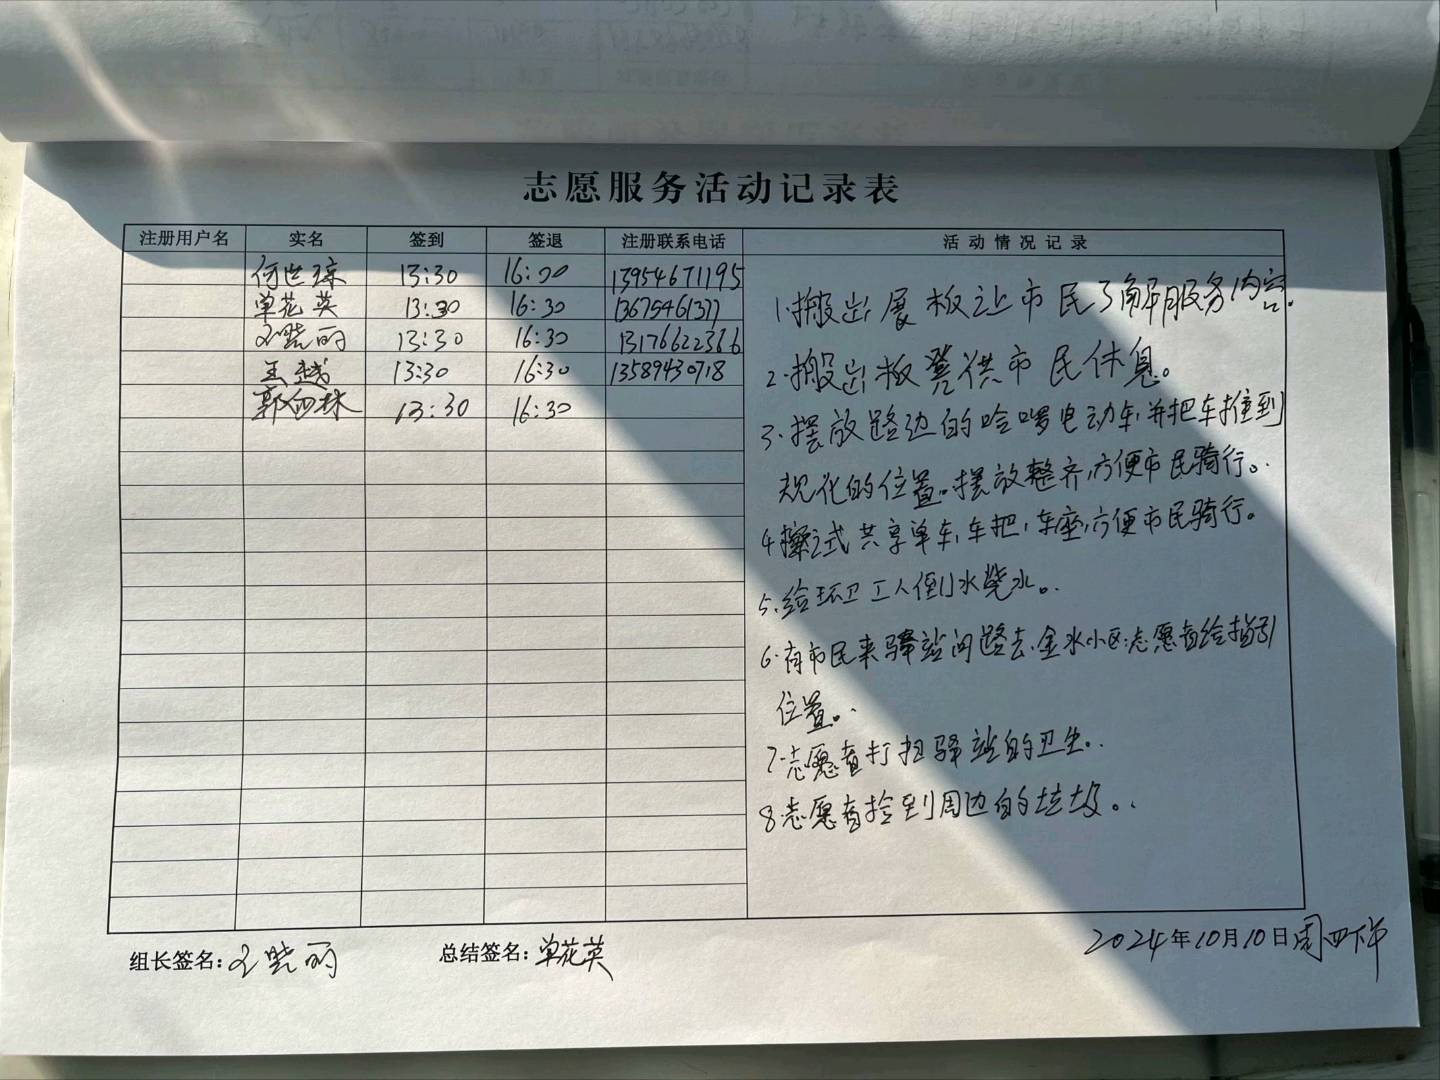 志愿服务活动记录表
注册用户名 实名 签到 签退 注册联系电话 活动情况记录
何世琼 13:30 16:00 13954671195
单花英 13:30 16:30 13675461377
王晓丽 13:30 16:30 13176622366
王越 13:30 16:30 13589430718
郭 林 13:30 16:30
1.搬出展板让市民了解服务内容.
2.搬出板凳供市民休息。
3.摆放路边的哈啰电动车,并把车推到
规化的位置。摆放整齐,方便市民骑行。
4.擦拭共享单车,车把,车座,方便市民骑行。
5.给环卫工人倒水凳水。
6.有市民来驿站问路去.金水小区:志愿者给指引
位置。
7.志愿者打扫驿站的卫生。
8.志愿者捡到周边的垃圾。
组长签名:王晓丽 总结签名:单花英 2024年10月10日周四下午